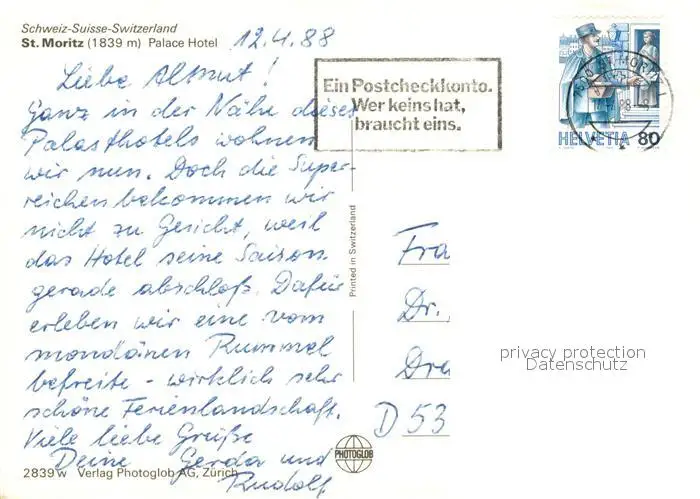 Schweiz-Suisse-Switzerland
St. Moritz (1839 m) Palace Hotel
12.4.88
Liebe Almut!
Ganz in der Nähe dieses
Palasthotels wohnen
wir nun. Doch die Super-
reichen bekommen wir
nicht zu Gesicht, weil
das Hotel seine Saison
gerade abschloß. Dafür
erleben wir eine vom
mondänen Rummel
befreite - wirklich sehr
schöne Ferienlandschaft.
Viele liebe Grüße
Deine Gerda und
Rudolf
2839 w Verlag Photoglob AG, Zürich
PHOTOGLOB
Printed in Switzerland
Ein Postcheckkonto.
Wer keins hat,
braucht eins.
HELVETIA 80
Fra
Dr.
Dra
D 53
privacy protection
Datenschutz